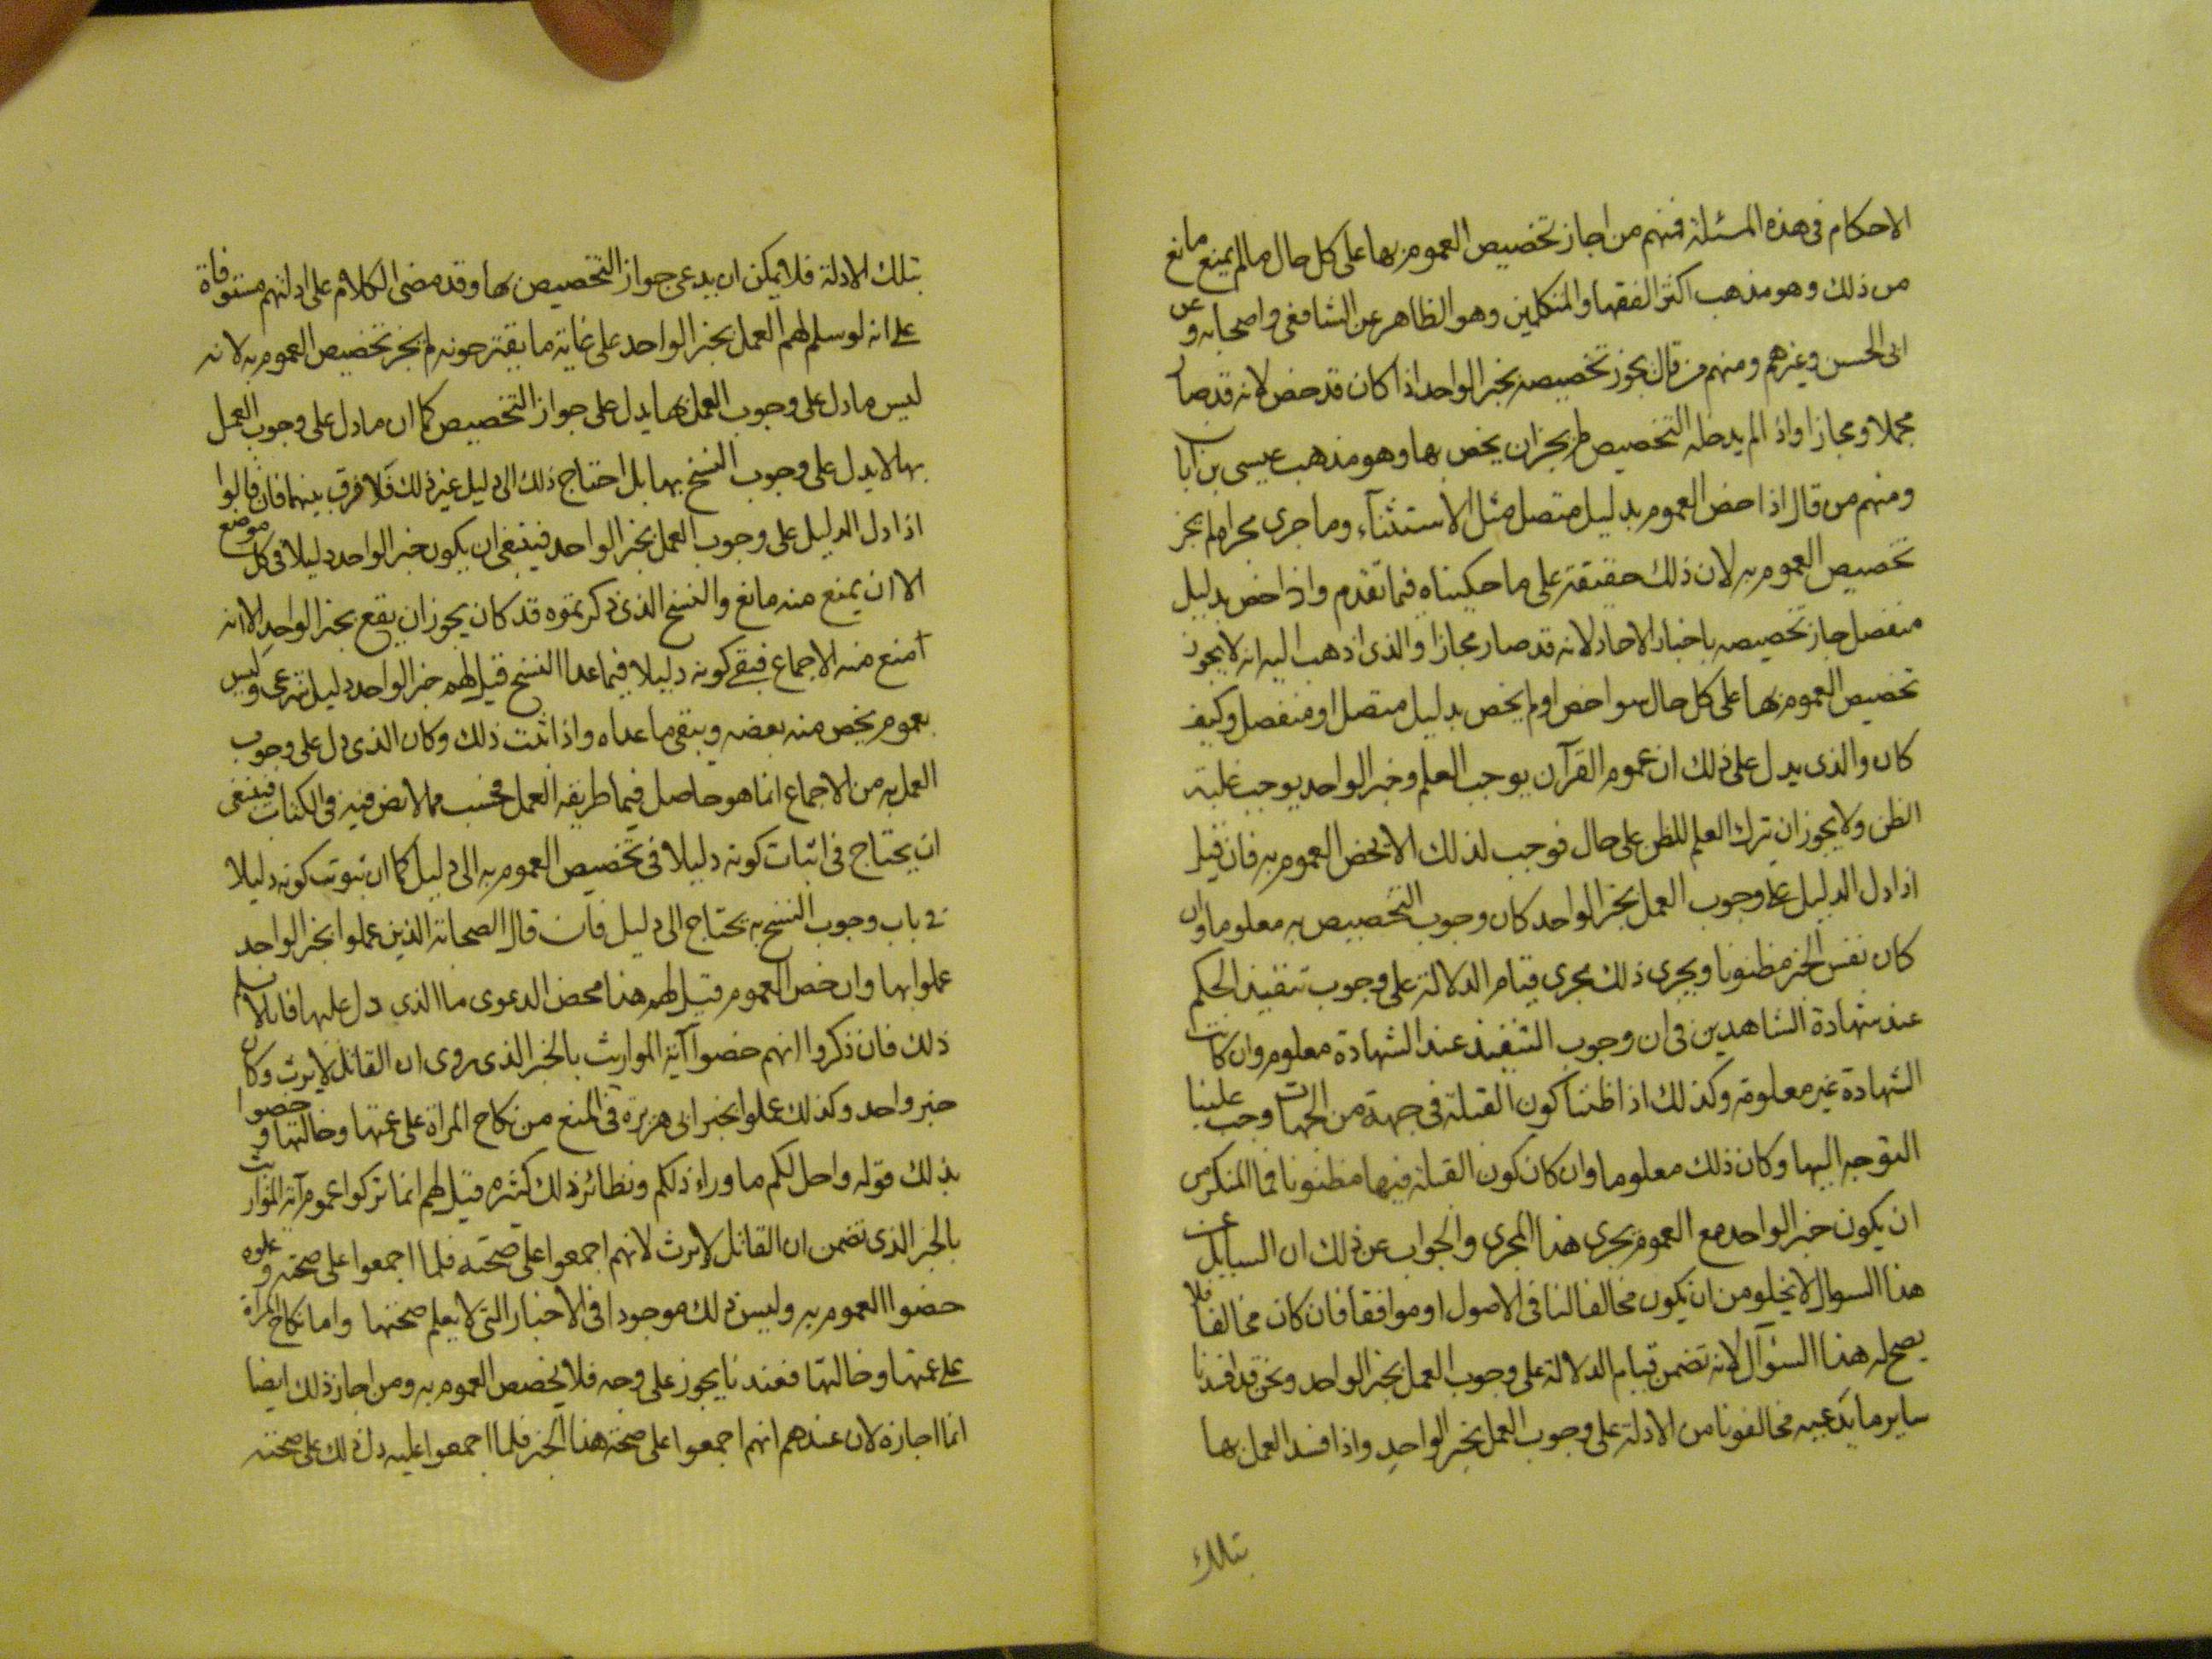 الاحكام فى هذه المسئلة فمنهم من اجاز تخصيص العموم بها على كل حال ما لم يمنع مانع
من ذلك وهو مذهب اكثر الفقها والمتكلمين وهو الظاهر عن الشافعى واصحابه وعن
ابى الحسن وغيرهم ومنهم من قال يجوز تخصيصه بخبر الواحد اذا كان قد خص لانه قد صار
مجملا ومجازا واذا لم يدخله التخصيص لم يجز ان يخص بها وهو مذهب عيسى بن ابان
ومنهم من قال اذا خص العموم بدليل متصل مثل الاستثنآء وما جرى مجراه لم يجز
تخصيص العموم به لان ذلك حقيقة على ما حكيناه فيما تقدم واذا خص بدليل
منفصل جاز تخصيصه باخبار الاحاد لانه قد صار مجازا والذى اذهب اليه انه لا يجوز
تخصيص العموم بها على كل حال سوا خص او لم يخص بدليل متصل او منفصل وكيف
كان والذى يدل على ذلك ان عموم القرآن يوجب العلم وخبر الواحد يوجب غلبة
الظن ولا يجوز ان يترك العلم للظن على حال فوجب لذلك الا يخص العموم به فان قيل
اذا دل الدليل على وجوب العمل بخبر الواحد كان وجوب التخصيص به معلوما وان
كان نفس الخبر مظنونا ويجرى ذلك مجرى قيام الدلالة على وجوب تنفيذ الحكم
عند شهادة الشاهدين فى ان وجوب التنفيذ عند الشهادة معلوم وان كانت
الشهادة غير معلومة وكذلك اذا ظننا كون القبلة فى جهة من الجهات وجب علينا
التوجه اليها وكان ذلك معلوما وان كان كون القبلة فيها مظنونا فما المنكر من
ان يكون خبر الواحد مع العموم يجرى هذا المجرى والجواب عن ذلك ان السايل عن
هذا السوال لا يخلو من ان يكون مخالفا لنا فى الاصول او موافقا فان كان مخالفا فلا
يصح له هذا السؤال لانه تضمن قيام الدلالة على وجوب العمل بخبر الواحد ونحن قد افسدنا
ساير ما يدعيه مخالفونا من الادلة على وجوب العمل بخبر الواحد واذا فسد العمل بها
بتلك
بتلك الادلة فلا يمكن ان يدعى جواز التخصيص بها وقد مضى الكلام على ادلتهم مستوفاة
على انه لو سلم لهم العمل بخبر الواحد على غاية ما يقترحونه لم يجز تخصيص العموم به لانه
ليس ما دل على وجوب العمل بها يدل على جواز التخصيص كما ان ما دل على وجوب العمل
بها لا يدل على وجوب النسخ بها بل احتاج ذلك الى دليل غير ذلك فلا فرق بينهما فان قالوا
اذا دل الدليل على وجوب العمل بخبر الواحد فينبغى ان يكون خبر الواحد دليلا فى كل موضع
الا ان يمنع منه مانع والنسخ الذى ذكرتموه قد كان يجوز ان يقع بخبر الواحد الا انه
امنع منه الاجماع فبقى كونه دليلا فيما عدا النسخ قيل لهم خبر الواحد دليل شرعى وليس
بعموم يخص منه بعضه ويبقى ما عداه واذا ثبت ذلك وكان الذى دل على وجوب
العمل به من الاجماع انما هو حاصل فيما طريقه العمل فحسب مما لا نص فيه فى الكتاب فينبغى
ان يحتاج فى اثبات كونه دليلا فى تخصيص العموم به الى دليل كما ان ثبوت كونه دليلا
فى باب وجوب النسخ به يحتاج الى دليل فان قال الصحابة الذين عملوا بخبر الواحد
عملوا بها وان خص العموم قيل لهم هذا محض الدعوى ما الذى دل عليها فانا لا نسلم
ذلك فان ذكروا انهم خصوا آية المواريث بالخبر الذى روى ان القاتل لا يرث وكان
خبر واحد وكذلك عملوا بخبر ابى هريرة فى المنع من نكاح المراة على عمتها وخالتها وخصوا
بذلك قوله واحل لكم ما وراء ذلكم ونظائر ذلك كثيرة قيل لهم انما تركوا عموم آية المواريث
بالخبر الذى تضمن ان القاتل لا يرث لانهم اجمعوا على صحته فلما اجمعوا على صحته وعملوه
خصوا العموم به وليس ذلك موجودا فى الاخبار التى لا يعلم صحتها واما نكاح المرآة
على عمتها وخالتها فعندنا يجوز على وجه فلا يخصص العموم به ومن اجاز ذلك ايضا
انما اجازه لان عندهم انهم اجمعوا على صحة هذا الخبر فلما اجمعوا عليه دل ذلك على صحته